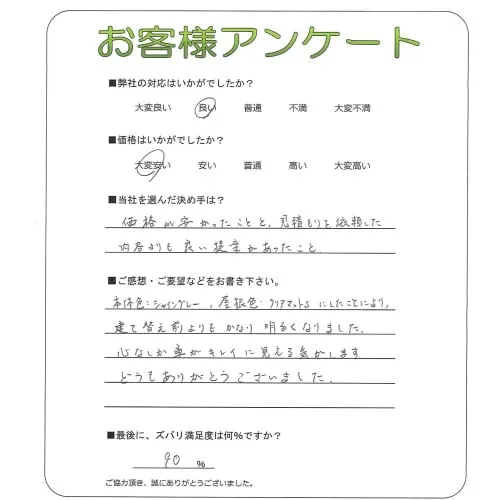 お客様アンケート
■弊社の対応はいかがでしたか？
大変良い 良い 普通 不満 大変不満
■価格はいかがでしたか？
大変安い 安い 普通 高い 大変高い
■当社を選んだ決め手は？
価格が安かったことと、見積もりを依頼した
内容よりも良い提案があったこと
■ご感想・ご要望などをお書き下さい。
本体色:シャイングレー、屋根色:クリアマットS にしたことにより、
建て替え前よりもかなり明るくなりました。
心なしか車がキレイに見える気がします
どうもありがとうございました。
■最後に、ズバリ満足度は何%ですか？
90 %
ご協力頂き、誠にありがとうございました。